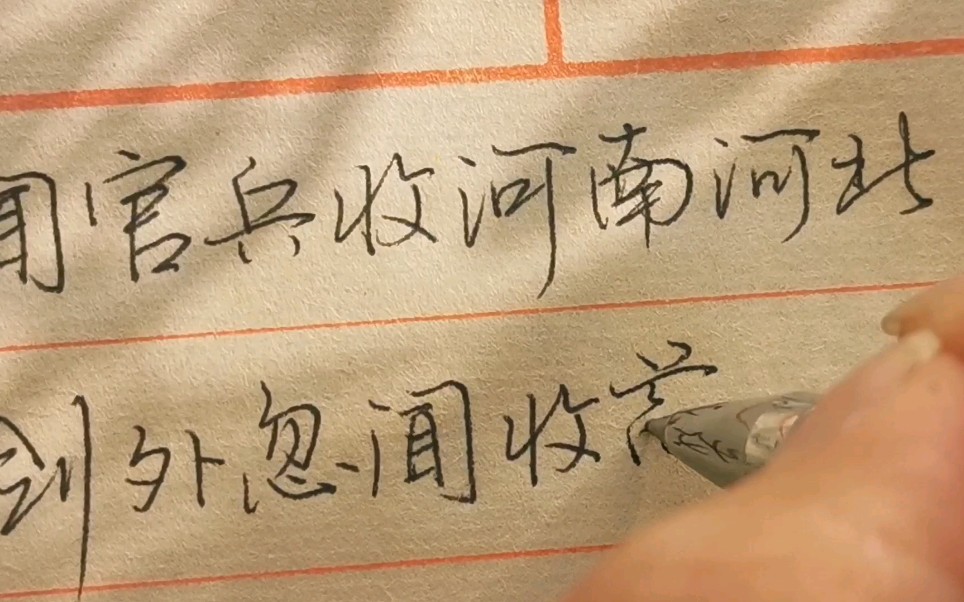 闻官兵收河南河北
剑外忽闻收